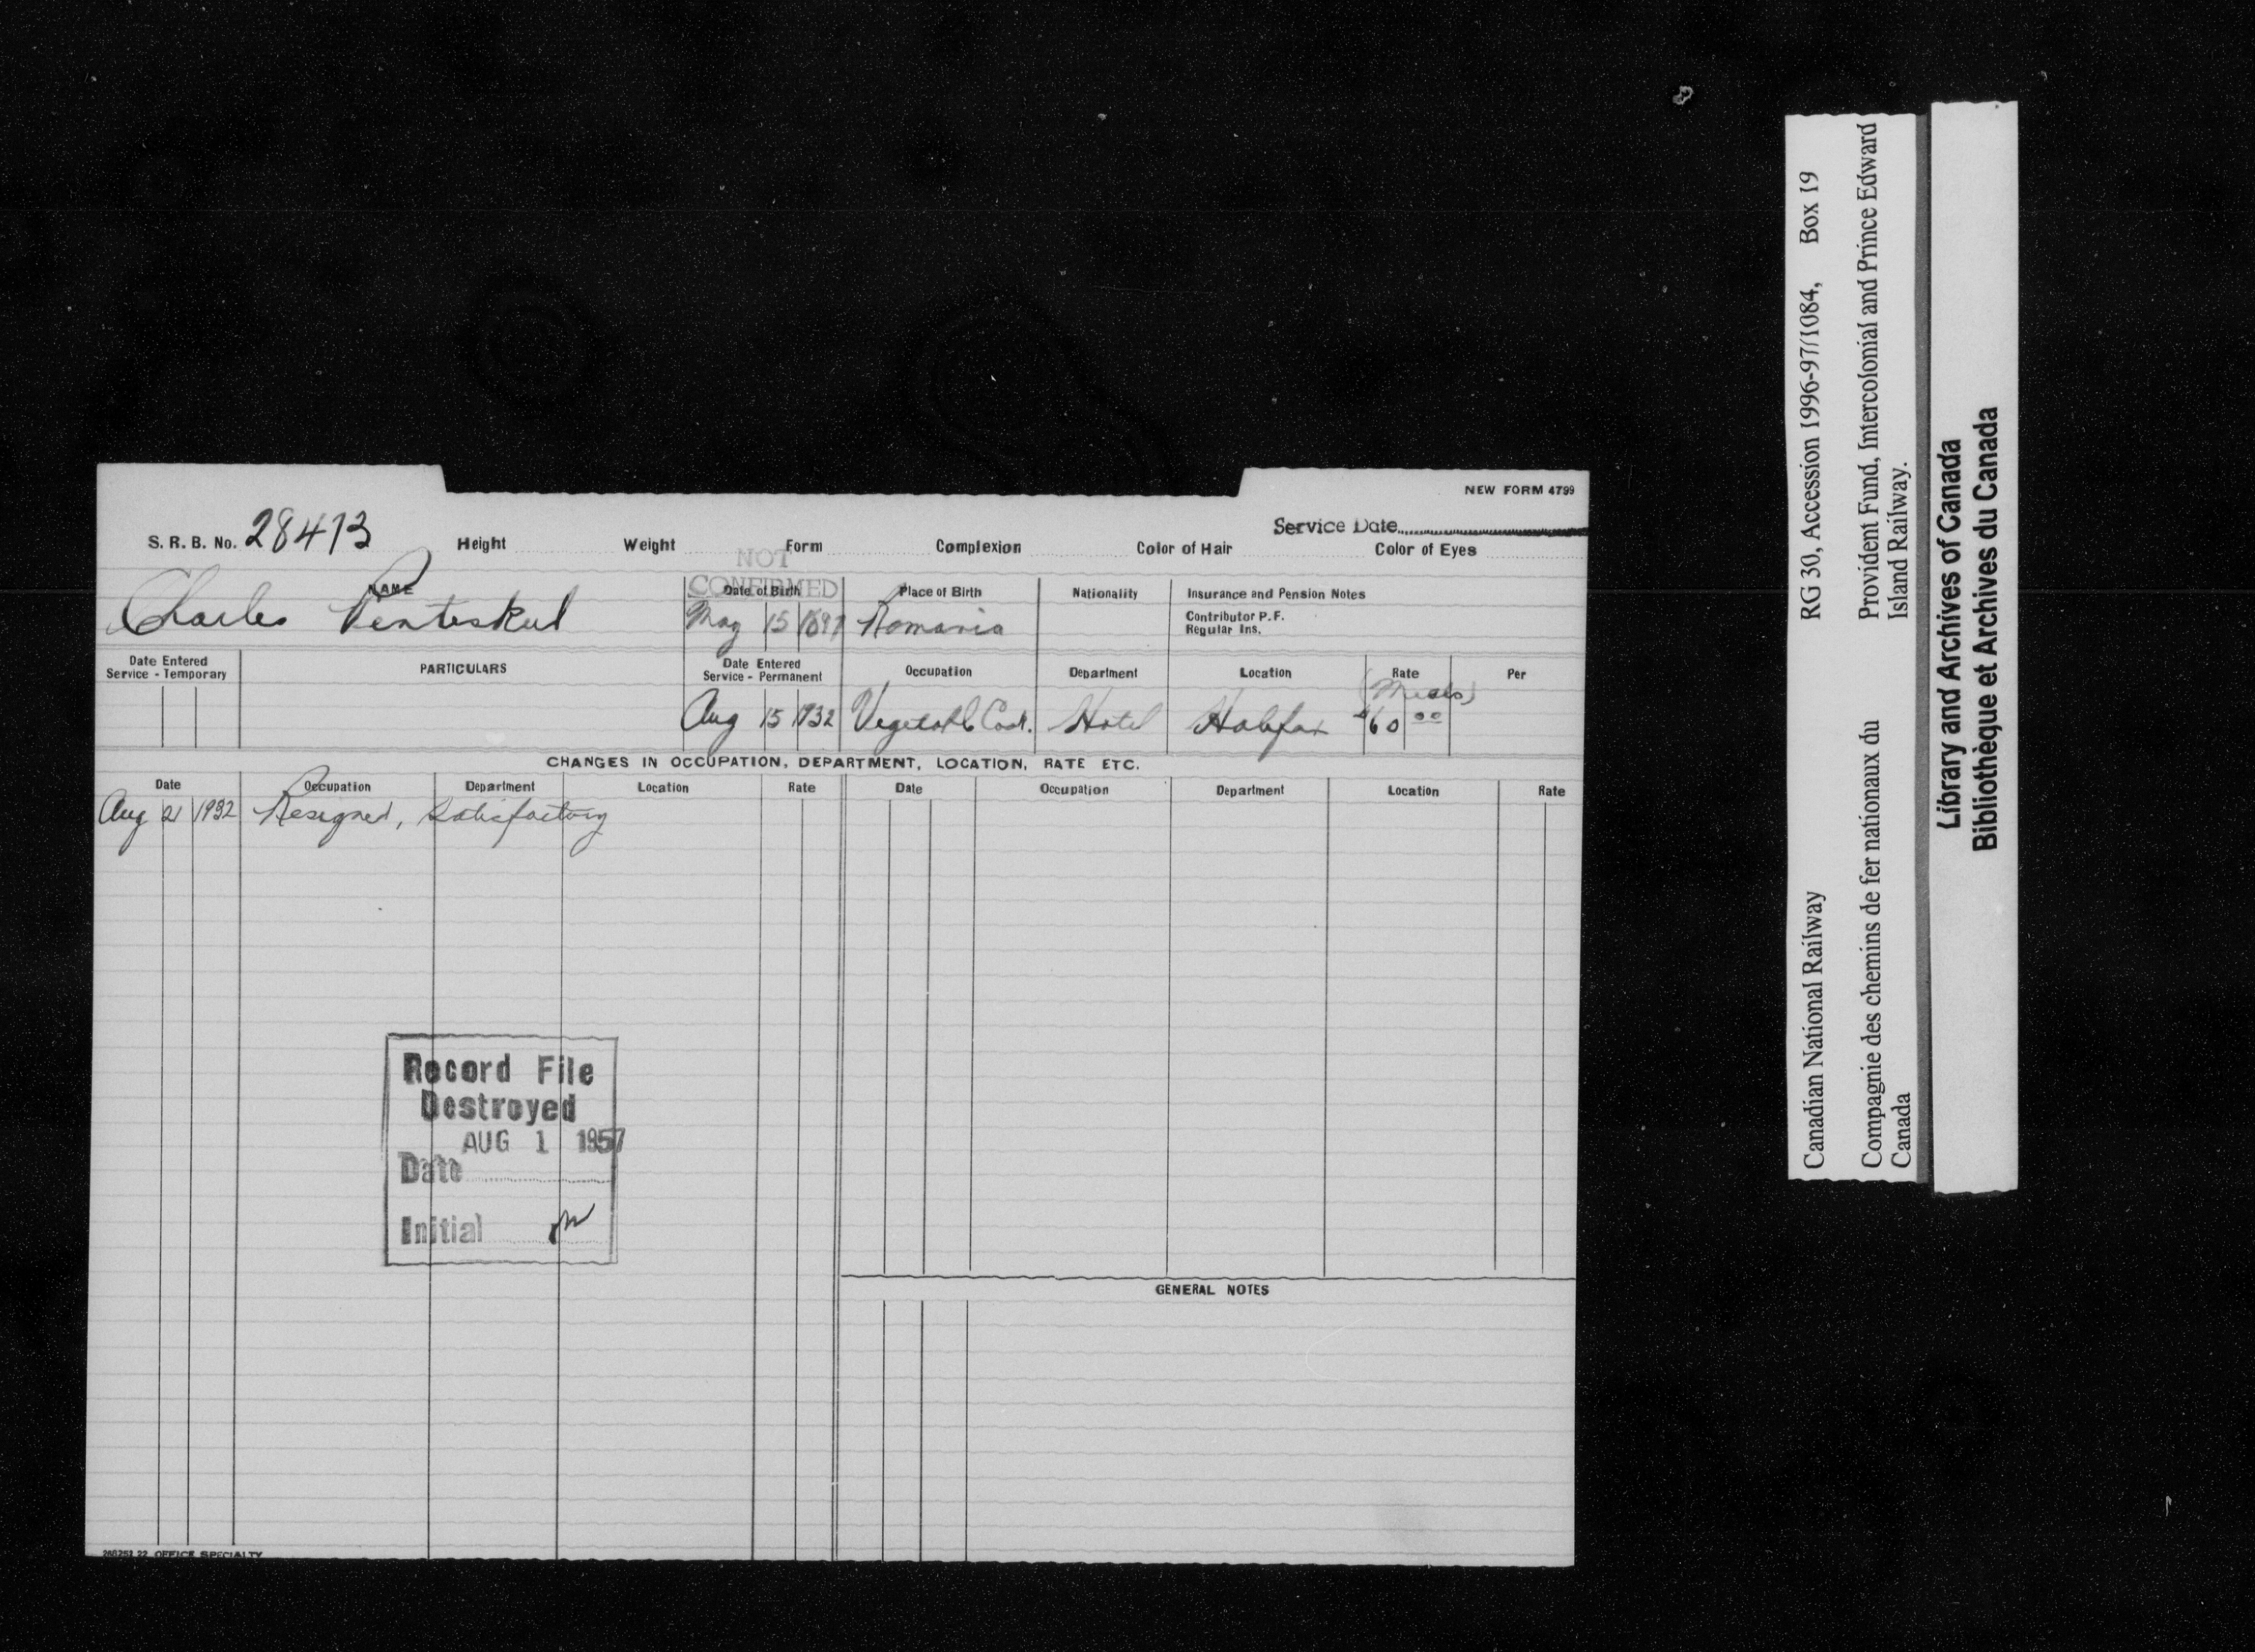 NEW FORM 4799
Service Date
S. R. B. No. 28413 Height Weight Form Complexion Color of Hair Color of Eyes
NOT CONFIRMED
NAME Date of Birth Place of Birth Nationality Insurance and Pension Notes
Charles Penteskul May 15 1897 Romania
Contributor P.F.
Regular Ins.
Date Entered Service - Temporary PARTICULARS Date Entered Service - Permanent Occupation Department Location Rate Per
(Meals)
Aug 15 1932 Vegetable Cook. Hotel Halifax $60 00
CHANGES IN OCCUPATION, DEPARTMENT, LOCATION, RATE ETC.
Date Occupation Department Location Rate Date Occupation Department Location Rate
Aug 21 1932 Resigned, Satisfactory
Record File
Destroyed
AUG 1 1957
Date
Initial
GENERAL NOTES
OFFICE SPECIALTY
Canadian National Railway RG 30, Accession 1996-97/1084, Box 19
Compagnie des chemins de fer nationaux du Canada
Provident Fund, Intercolonial and Prince Edward Island Railway.
Library and Archives of Canada
Bibliothèque et Archives du Canada